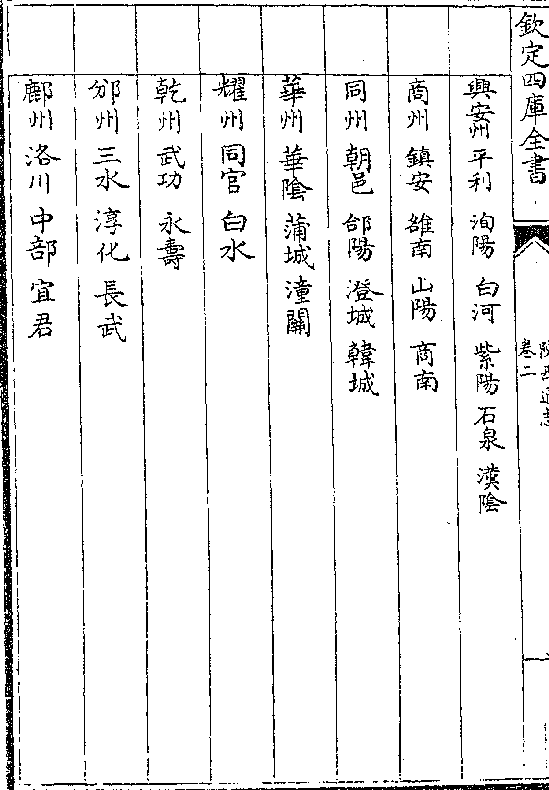 欽定四庫全書
卷二
興安州 平利 洵陽 白河 紫陽 石泉 漢陰
商州 鎮安 雒南 山陽 商南
同州 朝邑 郃陽 澄城 韓城
華州 華陰 蒲城 潼關
耀州 同官 白水
乾州 武功 永壽
邠州 三水 淳化 長武
鄜州 洛川 中部 宜君